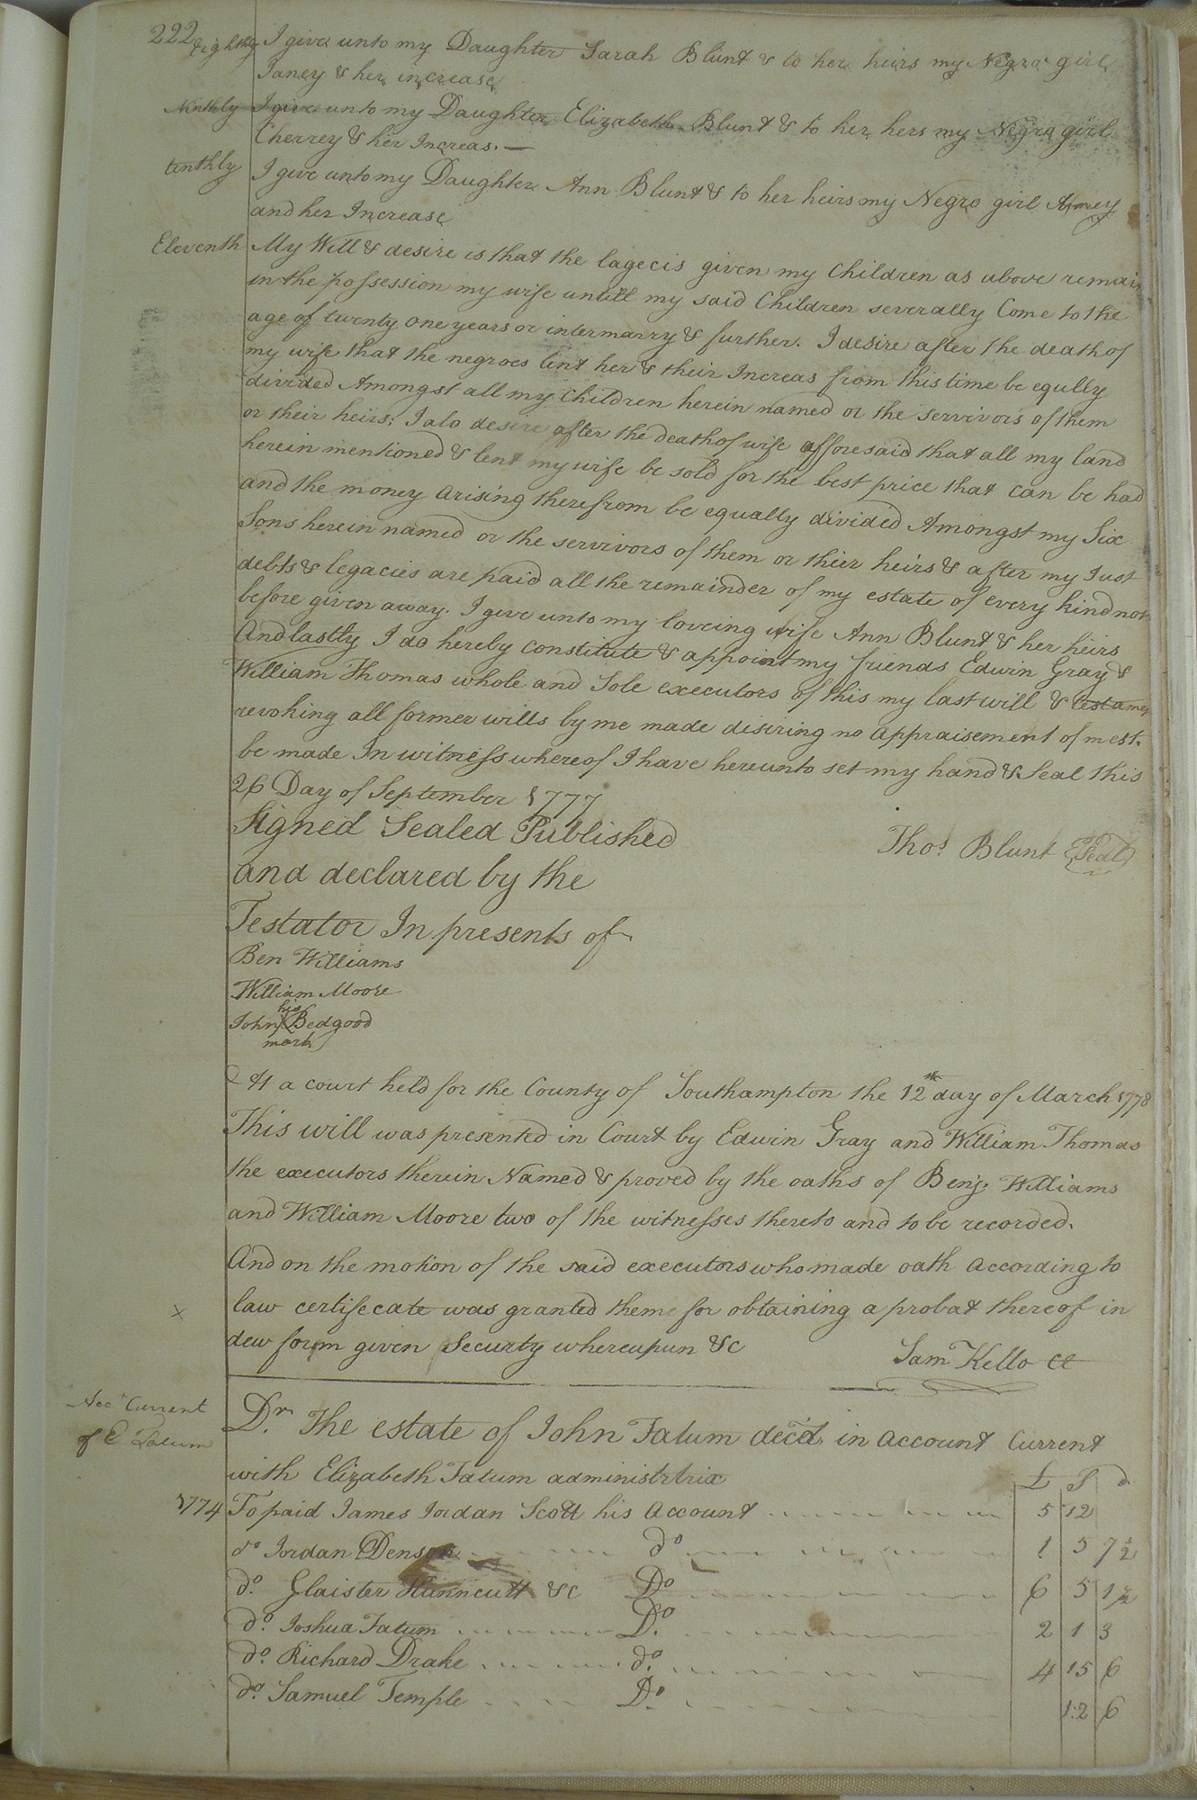 222
Eightly I give unto my Daughter Sarah Blunt & to her heirs my Negro girl
Janey & her increase
Ninthly I give unto my Daughter Elizabeth Blunt & to her hers my Negro girl
Cherrey & her Increas. —
tenthly I give unto my Daughter Ann Blunt & to her heirs my Negro girl Amey
and her Increase
Eleventh My Will & desire is that the lagecis given my Children as above remain
in the possession my wife untill my said Children severally Come to the
age of twenty one years or intermarry & further. I desire after the death of
my wife that the negroes lent her & their Increas from this time be egully
divided Amongst all my Children herein named or the servivors of them
or their heirs; I alo desire after the death of wife afforesaid that all my land
herein mentioned & lent my wife be sold for the best price that can be had
and the money arising therefrom be equally divided Amongst my Six
Sons herein named or the servivors of them or thier heirs & after my Just
debts & legacies are paid all the remainder of my estate of every kind not
before given away. I give unto my loveing wife Ann Blunt & her heirs
And lastly I do hereby constitute & appoint my friends Edwin Gray &
William Thomas whole and Sole executors of this my last will & testamen
revoking all former wills by me made desiring no appraisement of m est.
be made In witness whereof I have hereunto set my hand & Seal this
26 Day of September 1777
Signed Sealed Published Thos. Blunt (Seal)
and declared by the
Testator In presents of
Ben Williams
William Moore
his
John X Bedgood
mark
At a court held for the County of Southampton the 12th day of March 1778
This will was presented in Court by Edwin Gray and William Thomas
the executors therein Named & proved by the oaths of Benj. Williams
and William Moore two of the witnesses thereto and to be recorded.
And on the motion of the said executors who made oath According to
X law certifecate was granted them for obtaining a probat thereof in
dew form given Securty whereupun &c
Sam Kello CC
Acct Current
of E Tatum
Dr. The estate of John Tatum decd. in account Current
with Elizabeth Tatum administrtrix £ S d
1774 To paid James Jordan Scott his Account 5 12
do Jordan Denson do 1 5 7½
do. Glaister Hunnicutt &c Do 6 5 1½
do. Joshua Tatum Do. 2 1 3
do. Richard Drake do. 4 15 6
do. Samuel Temple Do. 12 6